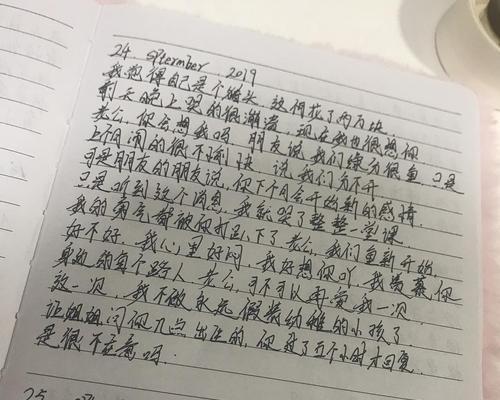 24. eptember. 2019
我觉得自己是个猪头,这個花了两万块.
前天晚上哭的很崩溃,现在我也很想你
老公,你会想我吗,朋友说我们缘分很重,只是
上个月闹的很不愉快,说我们分不开
可是朋友的朋友说,你下个月会开始新的感情
只是听到这个消息,我就哭了整整一堂课.
我的勇气都被你打趴下了老公,我们重新开始.
好不好,我心里好闷,我好想你吖,我羡慕你
身边的每个路人,老公,可不可以再爱我一次,
放一次,我不做永远假装幼稚的小孩了.
让姐姐问你几点出生的,你过了五个小时才回复.
是很不在意吗.
25.